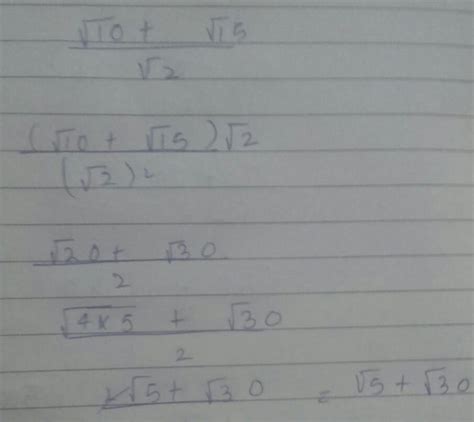 √10 + √15
√2
(√10 + √15)√2
(√2)²
√20 + √30
2
√4x5 + √30
2
2√5 + √30 = √5 + √30